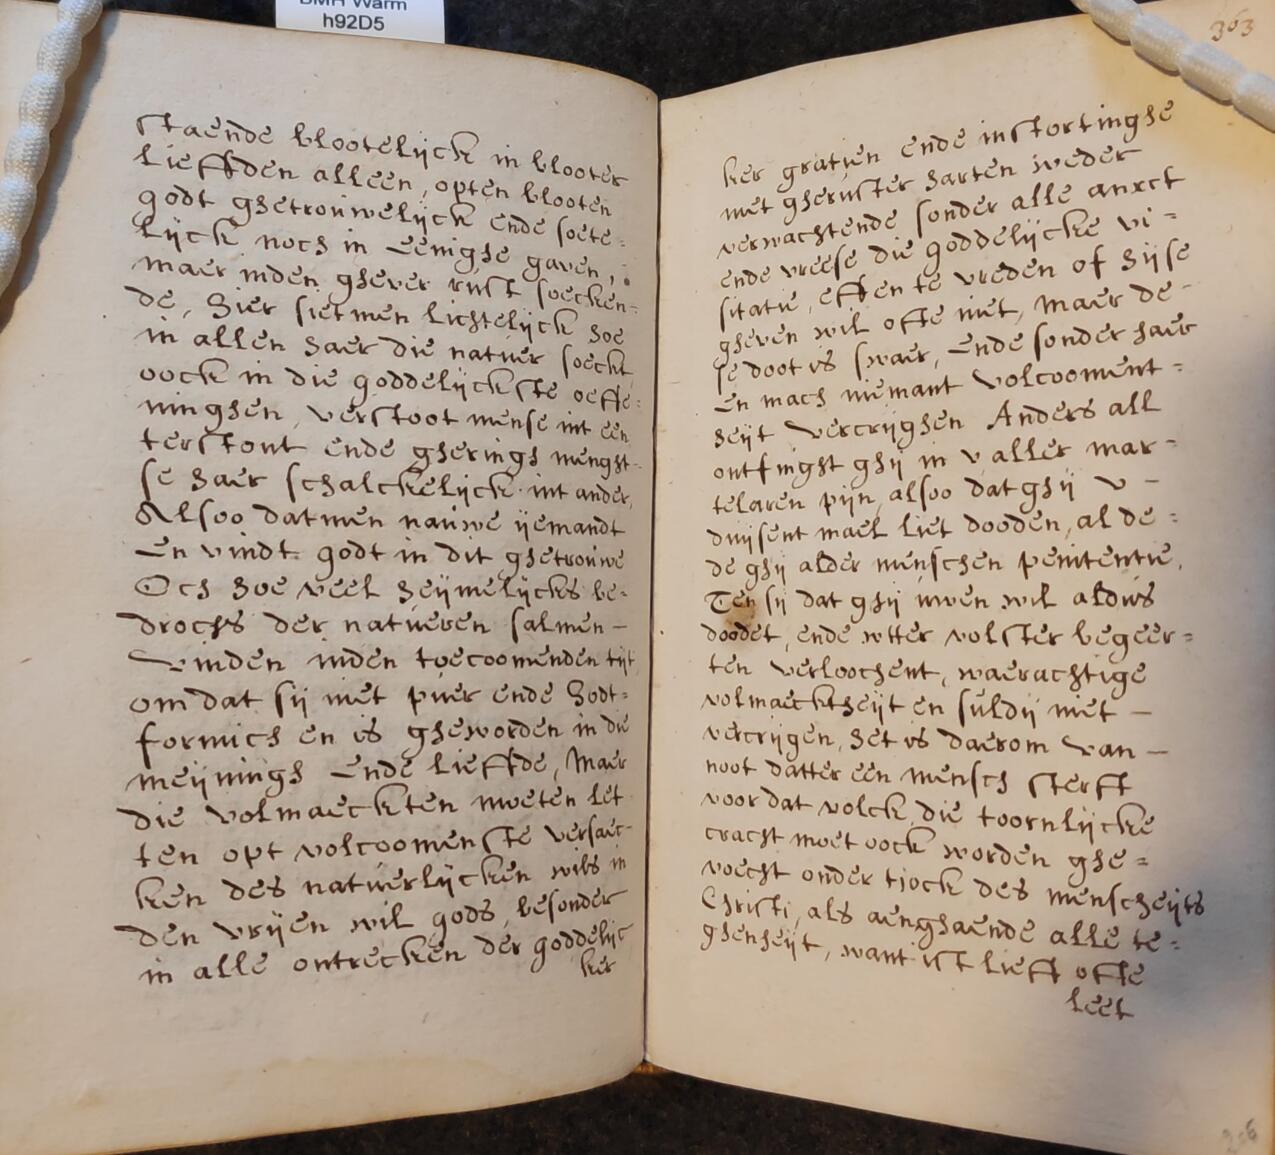 BMH Warm
h92D5
staende blootelijck in blooter
lieffden alleen, opten blooten
godt ghetrouwelijck ende soete=
lijck noch in eenighe gaven,
maer inden ghever rust soecken=
de, hier sietmen lichtelijck hoe
in allen haer die natuer soeckt,
oock in die goddelijckste oeffe=
ninghen, verstoot mense int een
terstont ende gherings menght=
se haer schalckelijck int ander,
Alsoo datmen nauwe ijemandt
En vindt godt in dit ghetrouwe
Och hoe veel heijmelijcks be=
drochs der natueren salmen –
vinden inden toecoomenden tijt
om dat sij niet puer ende godt=
formich en is gheworden in die
meijnings ende lieffde, Maer
die volmaeckten moeten let
ten opt volcoomenste versaec-
ken des natuerlijcken wils in
den vrijen wil gods, besonder
in alle ontrecken der goddelijc
ker
363
ker gratien ende instortinghe
met gheruster harten weder
verwachtende sonder alle anxct
ende vreese die goddelijcke vi=
sitatie, effen te vreden of hijse
gheven wil ofte niet, maer de-
se doot is swaer, ende sonder haer
en mach niemant volcooment=
heijt vercrijghen Anders all
ontfinght ghij in v aller mar=
telaren pijn, alsoo dat ghij v –
duijsent mael liet dooden, al de=
de ghij alder menschen penitentie,
Ten sij dat ghij uwen wil aldus
doodet, ende wtter volster begeer=
ten verloochent, waerachtige
volmaecktheijt en suldij niet –
vercrijgen, het is daerom van –
noot datter een mensch sterft
voor dat volck, die toornlijcke
cracht moet oock worden ghe=
voecht onder tjock des menscheijts
Christi, als aenghaende alle te=
ghenheijt, want ist lieft ofte
leet